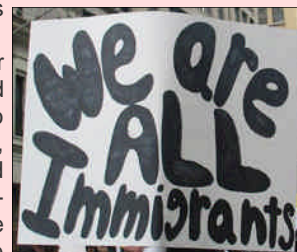 We are
ALL
Immigrants